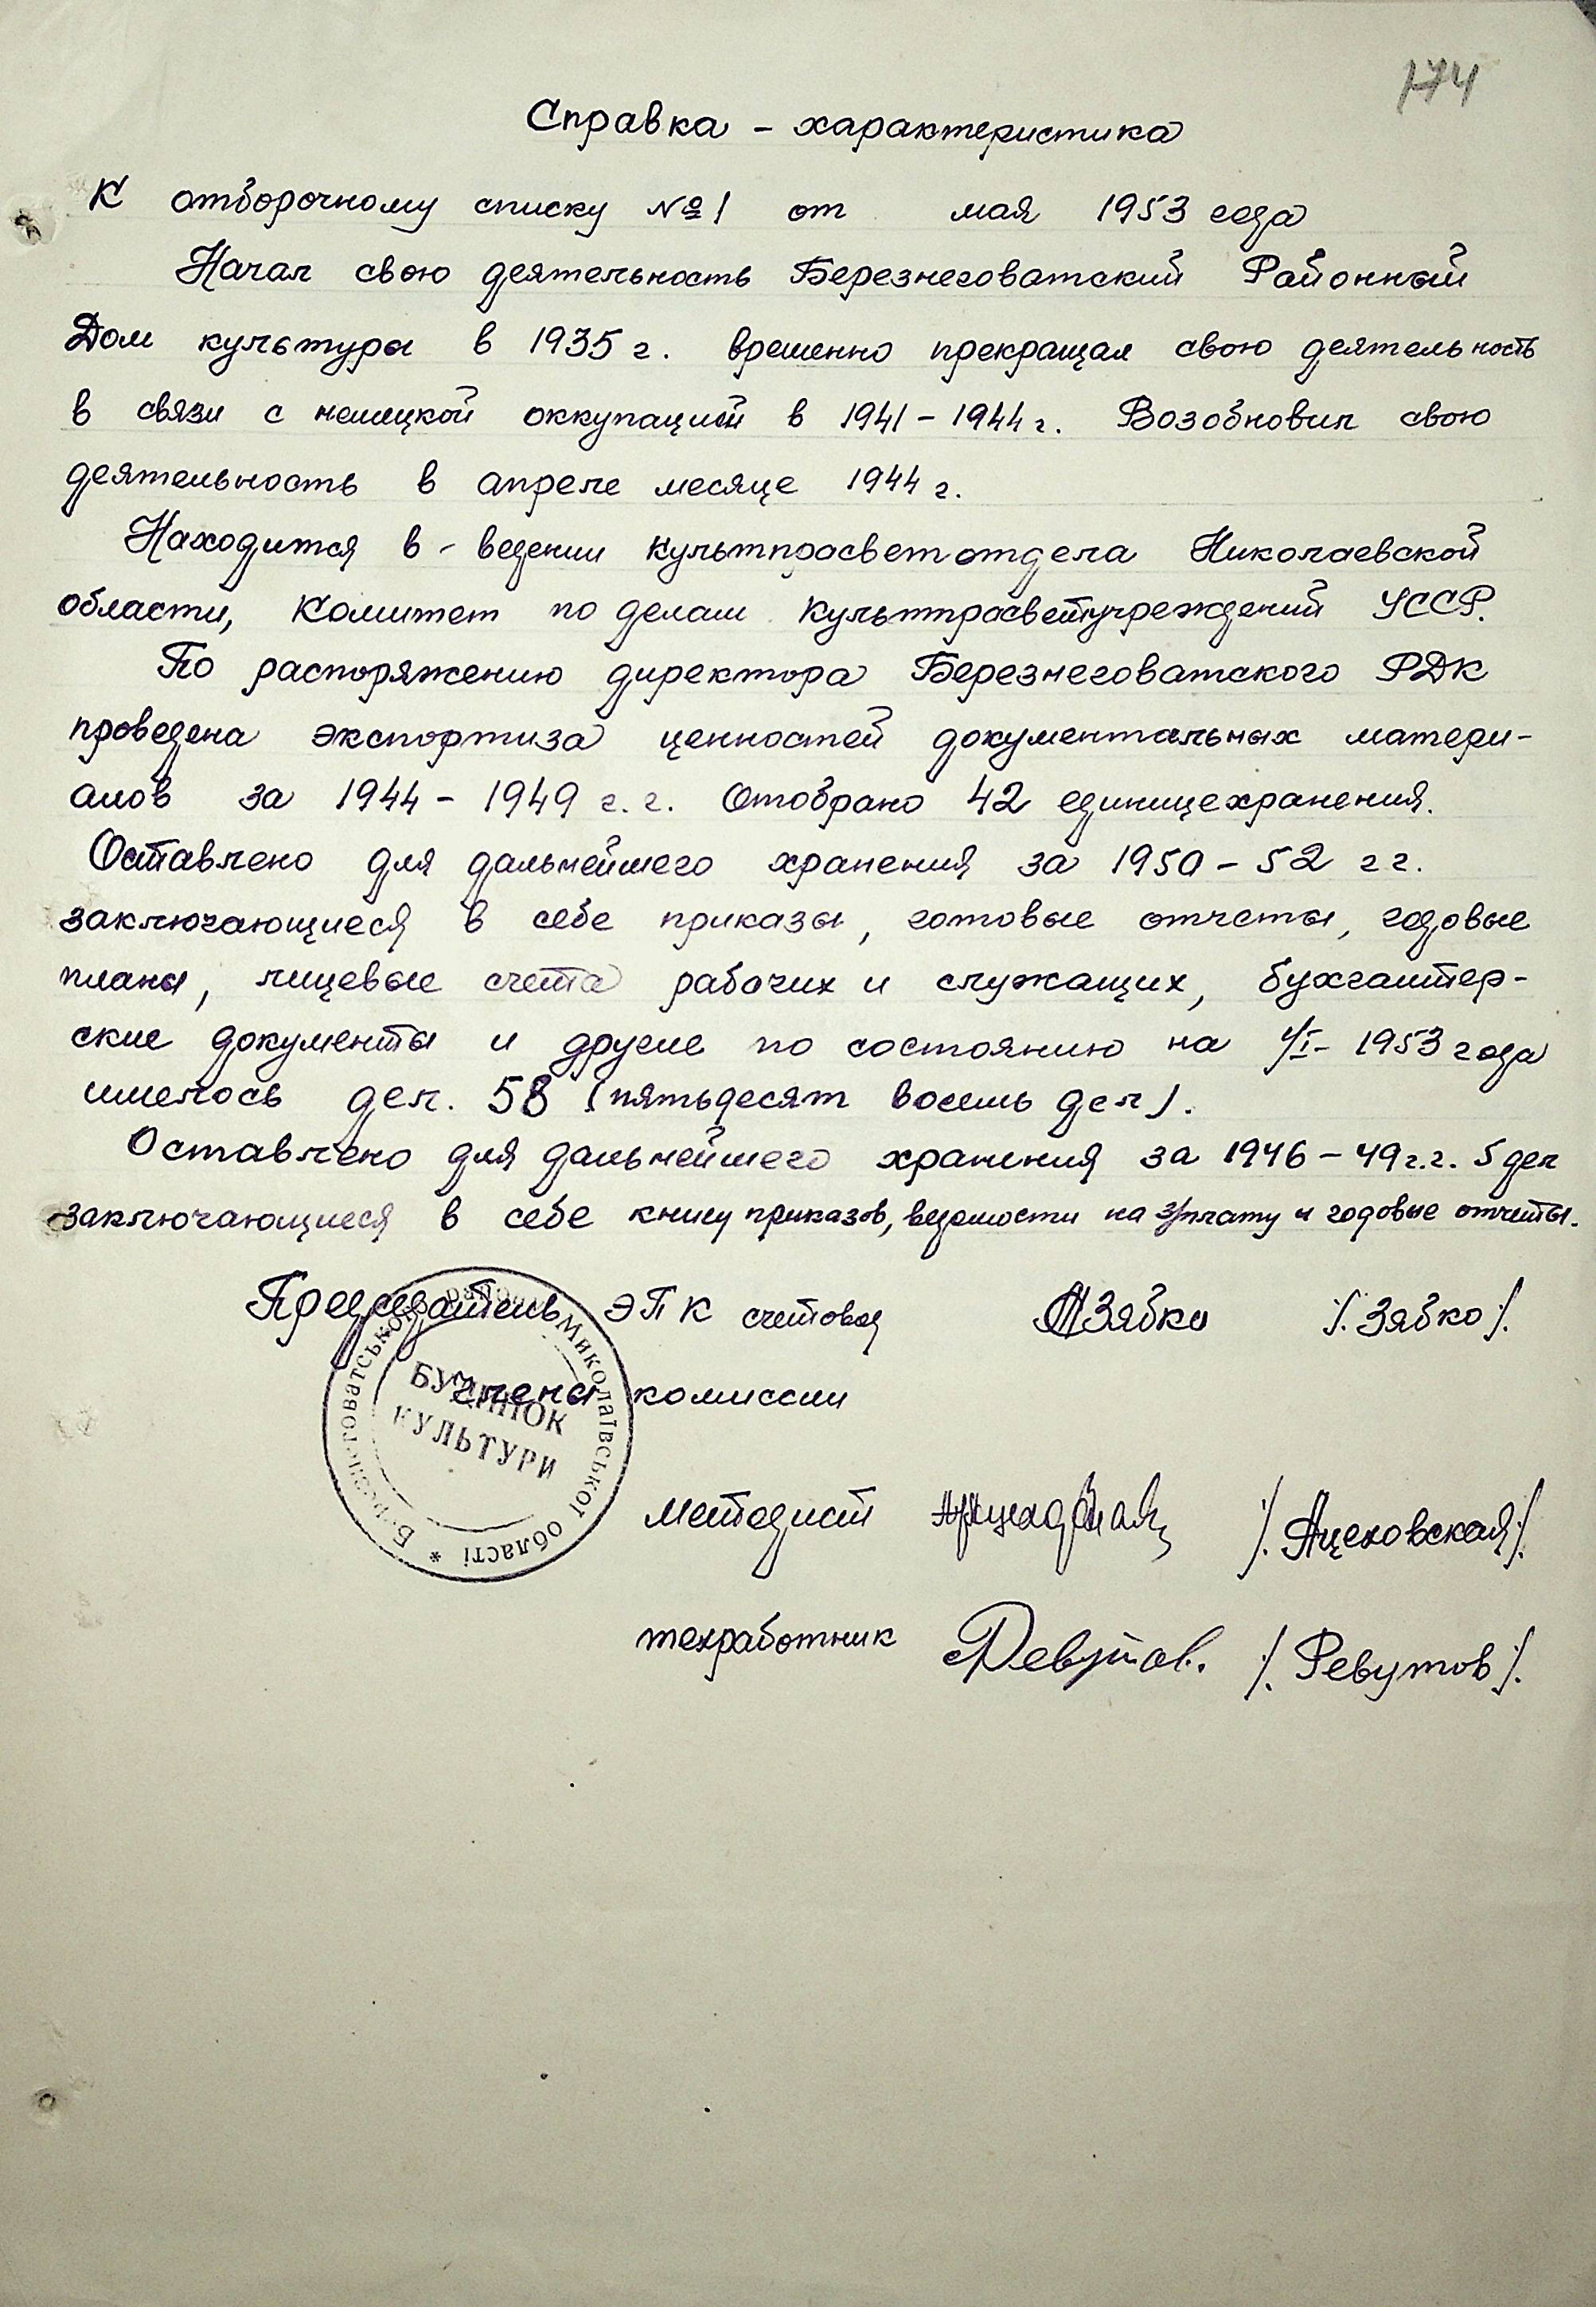 174
Справка - характеристика
К отборочному списку №1 от мая 1953 года
Начал свою деятельность Березнеговатский Районный
Дом культуры в 1935 г. временно прекращал свою деятельность
в связи с немецкой оккупацией в 1941 - 1944 г. Возобновил свою
деятельность в апреле месяце 1944 г.
Находится в - ведении культпросветотдела Николаевской
области, Комитет по делам культпросветучреждений УССР.
По распоряжению директора Березнеговатского РДК
проведена экспортиза ценностей документальных матери-
алов за 1944 - 1949 г. г. Отобрано 42 единицехранения.
Оставлено для дальнейшего хранения за 1950 - 52 г г.
заключающиеся в себе приказы, готовые отчеты, годовые
планы, лицевые счета рабочих и служащих, бухгалтер-
ские документы и другие по состоянию на 1/I- 1953 года
имелось дел. 58 (пятьдесят восемь дел).
Оставлено для дальнейшего хранения за 1946 - 49 г.г. 5 дел
заключающиеся в себе книгу приказов, ведомости на з/плату и годовые отчеты.
Председатель ЭПК счетовод Зябко /. Зябко /.
члены комиссии
БУДИНОК
КУЛЬТУРИ
Миколаївської області *
методист /. Ацеховская /.
техработник Ревутов. /. Ревутов /.